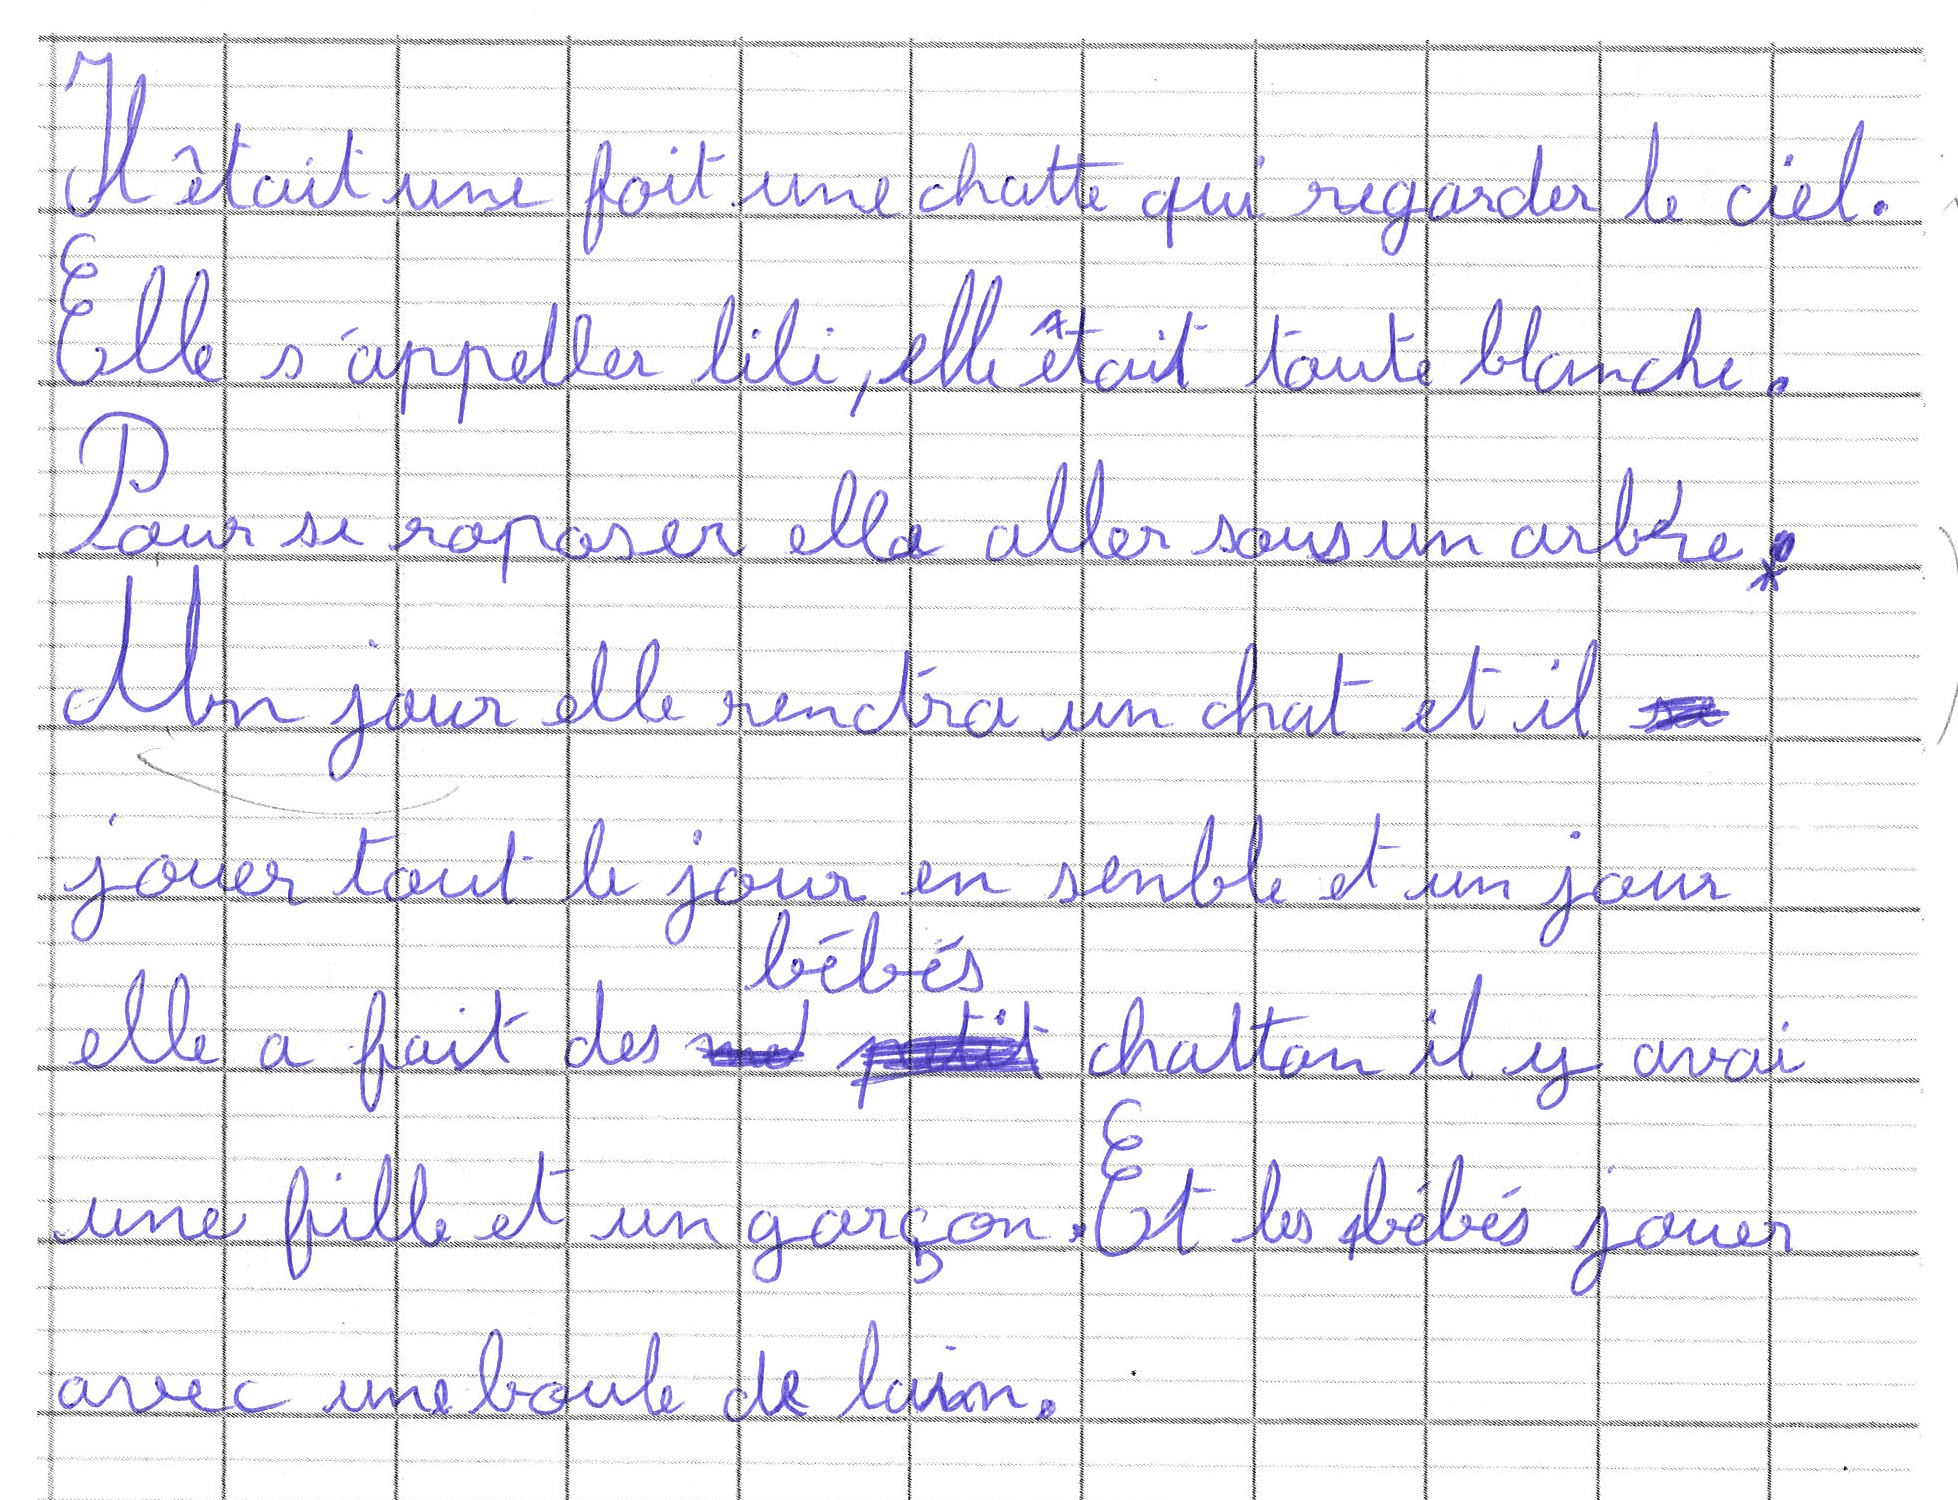 Il êtait une foit une chatte qui regarder le ciel.
Elle s'appeller lili, elle êtait toute blanche.
Pour se roposer elle aller sous un arbre.
Un jour elle rendra un chat et il
jouer tout le jour en senble et un jour
bébés
elle a fait des petit chatton il y avai
une fille et un garçon. Et les bébés jouer
avec une boule de lain.